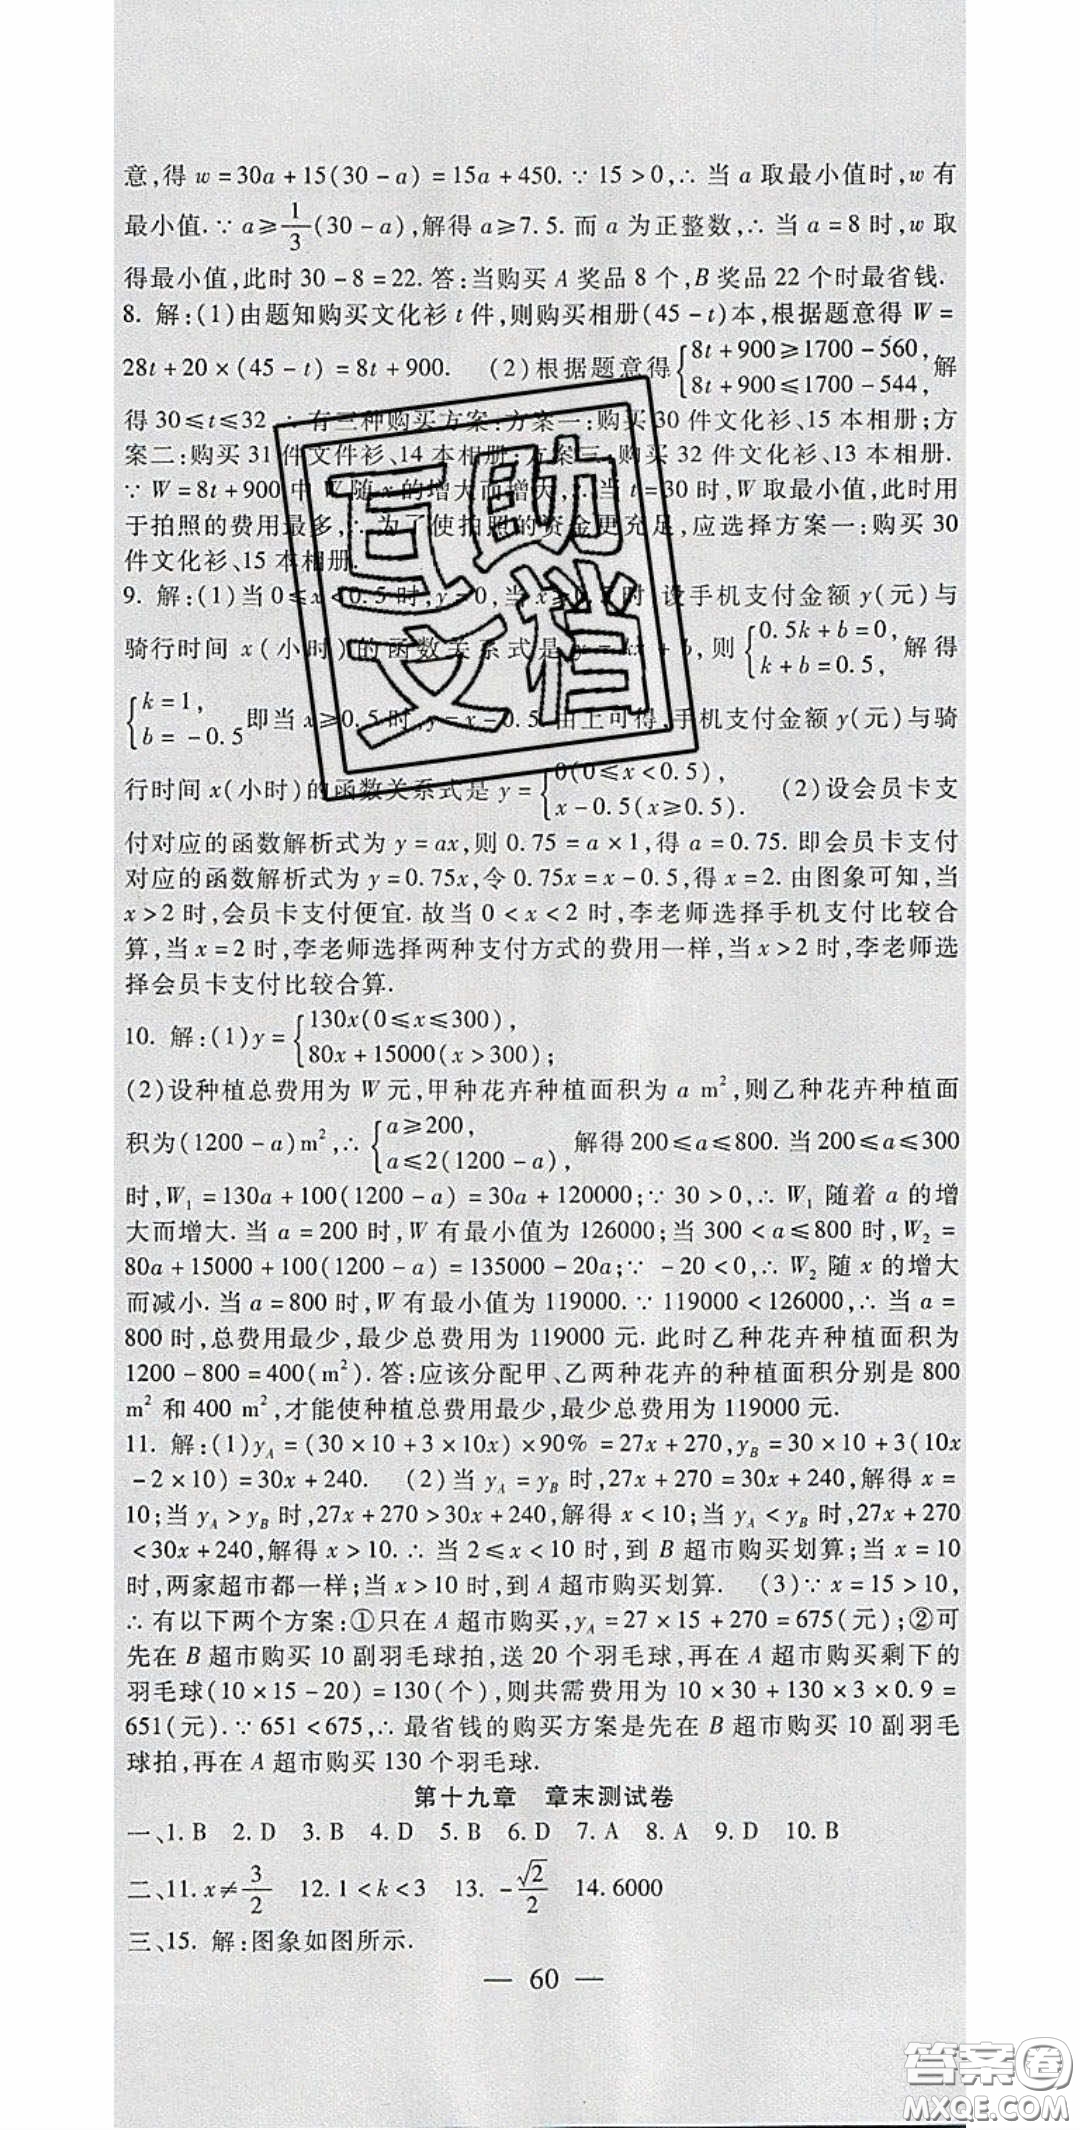 意,得 w=30a+15(30-a)=15a+450.∵15>0,∴当 a 取最小值时,w 有
最小值.∵a≥1/3(30-a),解得 a≥7.5.而 a 为正整数,∴当 a=8 时,w 取
得最小值,此时 30-8=22.答:当购买 A 奖品 8 个,B 奖品 22 个时最省钱.
8. 解:(1)由题知购买文化衫 t 件,则购买相册(45-t)本,根据题意得 W=
28t+20×(45-t)=8t+900. (2)根据题意得{8t+900≥1700-560, 8t+900≤1700-544,解
得 30≤t≤32.∴有三种购买方案:方案一:购买 30 件文化衫、15 本相册;方
案二:购买 31 件文件衫、14 本相册;方案三:购买 32 件文化衫、13 本相册.
∵W=8t+900 中 W 随 x 的增大而增大,∴当 t=30 时,W 取最小值,此时用
于拍照的费用最多,∴为了使拍照的资金更充足,应选择方案一:购买 30
件文化衫、15 本相册.
9. 解:(1)当 0≤x<0.5 时,y=0,当 x≥0.5 时,设手机支付金额 y(元)与
骑行时间 x(小时)的函数关系式是 y=kx+b,则{0.5k+b=0, k+b=0.5,解得
{k=1, b=-0.5 即当 x≥0.5 时,y=x-0.5.由上可得,手机支付金额 y(元)与骑
行时间 x(小时)的函数关系式是 y={0(0≤x<0.5), x-0.5(x≥0.5). (2)设会员卡支
付对应的函数解析式为 y=ax,则 0.75=a×1,得 a=0.75.即会员卡支付
对应的函数解析式为 y=0.75x,令 0.75x=x-0.5,得 x=2.由图象可知,当
x>2 时,会员卡支付便宜.故当 0<x<2 时,李老师选择手机支付比较合
算,当 x=2 时,李老师选择两种支付方式的费用一样,当 x>2 时,李老师选
择会员卡支付比较合算.
10. 解:(1)y={130x(0≤x≤300), 80x+15000(x>300);
(2)设种植总费用为 W 元,甲种花卉种植面积为 a m²,则乙种花卉种植面
积为(1200-a)m²,∴{a≥200, a≤2(1200-a),解得 200≤a≤800.当 200≤a≤300
时,W₁=130a+100(1200-a)=30a+120000;∵30>0,∴W₁ 随着 a 的增
大而增大.当 a=200 时,W 有最小值为 126000;当 300<a≤800 时,W₂=
80a+15000+100(1200-a)=135000-20a;∵-20<0,∴W₂ 随 x 的增大
而减小.当 a=800 时,W 有最小值为 119000.∵119000<126000,∴当 a=
800 时,总费用最少,最少总费用为 119000 元.此时乙种花卉种植面积为
1200-800=400(m²).答:应该分配甲、乙两种花卉的种植面积分别是 800
m² 和 400 m²,才能使种植总费用最少,最少总费用为 119000 元.
11. 解:(1)y_A=(30×10+3×10x)×90%=27x+270,y_B=30×10+3(10x
-2×10)=30x+240. (2)当 y_A=y_B 时,27x+270=30x+240,解得 x=
10;当 y_A>y_B 时,27x+270>30x+240,解得 x<10;当 y_A<y_B 时,27x+270
<30x+240,解得 x>10.∴当 2≤x<10 时,到 B 超市购买划算;当 x=10
时,两家超市都一样;当 x>10 时,到 A 超市购买划算. (3)∵x=15>10,
∴有以下两个方案:①只在 A 超市购买,y_A=27×15+270=675(元);②可
先在 B 超市购买 10 副羽毛球拍,送 20 个羽毛球,再在 A 超市购买剩下的
羽毛球(10×15-20)=130(个),则共需费用为 10×30+130×3×0.9=
651(元).∵651<675,∴最省钱的购买方案是先在 B 超市购买 10 副羽毛
球拍,再在 A 超市购买 130 个羽毛球.
第十九章 章末测试卷
一、1.B 2.D 3.B 4.D 5.B 6.D 7.A 8.A 9.D 10.B
二、11.x≠3/2 12.1<k<3 13.-√2/2 14.6000
三、15. 解:图象如图所示.
— 60 —
互助
文档
答案圈
MXQE.COM